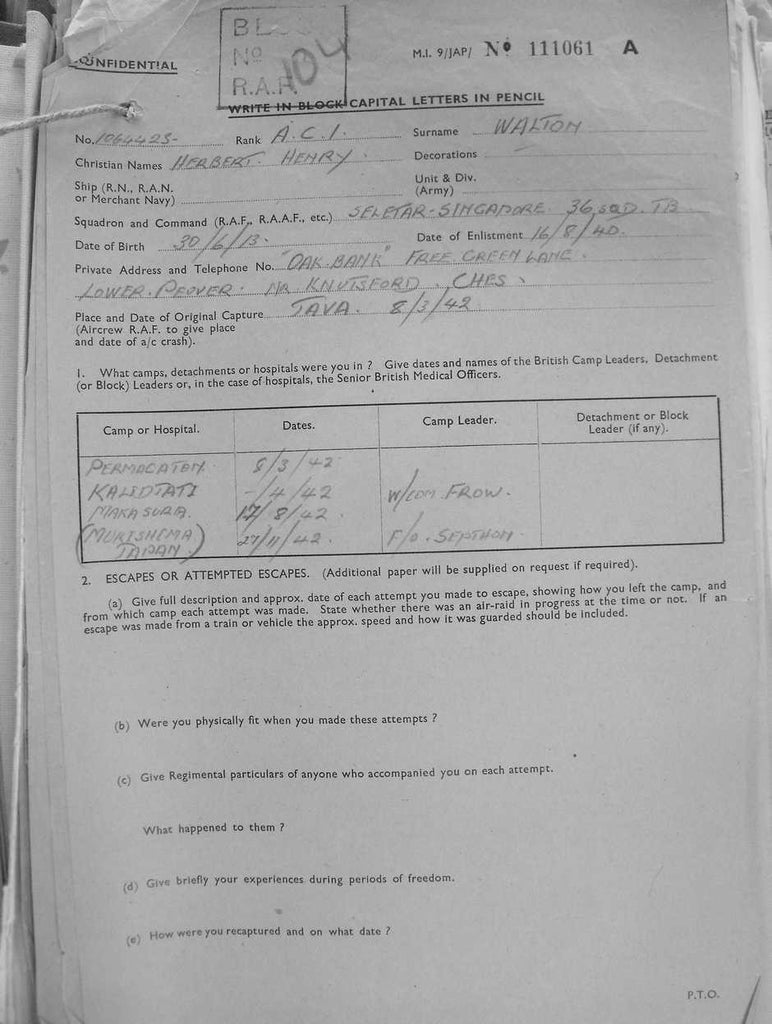 CONFIDENTIAL
BL
No 104
R.A.F.
M.I. 9/JAP/ No 111061 A
WRITE IN BLOCK CAPITAL LETTERS IN PENCIL
No. 1064425 Rank A.C.1. Surname WALTON
Christian Names HERBERT. HENRY. Decorations
Ship (R.N., R.A.N. or Merchant Navy) Unit & Div. (Army)
Squadron and Command (R.A.F., R.A.A.F., etc.) SELETAR-SINGAPORE 36 SQD. TB
Date of Birth 30/6/13. Date of Enlistment 16/8/40.
Private Address and Telephone No. "OAK-BANK" FREE GREEN LANE.
LOWER. PEOVER. NR KNUTSFORD, CHES.
Place and Date of Original Capture JAVA. 8/3/42
(Aircrew R.A.F. to give place
and date of a/c crash).
1. What camps, detachments or hospitals were you in ? Give dates and names of the British Camp Leaders, Detachment
(or Block) Leaders or, in the case of hospitals, the Senior British Medical Officers.
Camp or Hospital. Dates. Camp Leader. Detachment or Block Leader (if any).
8/3/42
KALIDJATI -/4/42 W/COM. FROW.
MAKASURA. 17/8/42.
(MUKISHEMA JAPAN.) 27/11/42. F/O.
2. ESCAPES OR ATTEMPTED ESCAPES. (Additional paper will be supplied on request if required).
(a) Give full description and approx. date of each attempt you made to escape, showing how you left the camp, and
from which camp each attempt was made. State whether there was an air-raid in progress at the time or not. If an
escape was made from a train or vehicle the approx. speed and how it was guarded should be included.
(b) Were you physically fit when you made these attempts ?
(c) Give Regimental particulars of anyone who accompanied you on each attempt.
What happened to them ?
(d) Give briefly your experiences during periods of freedom.
(e) How were you recaptured and on what date ?
P.T.O.